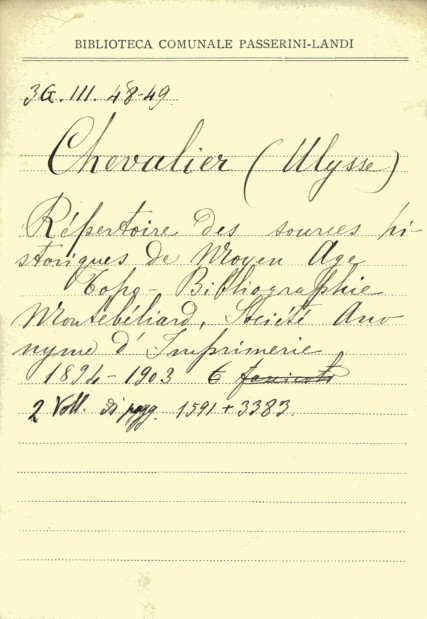 BIBLIOTECA COMUNALE PASSERINI-LANDI
3G. III. 48-49
Chevalier (Ulysse)
Répertoire des sources hi-
storiques de Moyen Age
Topo-Bibliographie
Montebéliard, Société Ano
nyme d'Imprimerie
1894-1903 6
2 Voll. di pagg. 1591+3383.